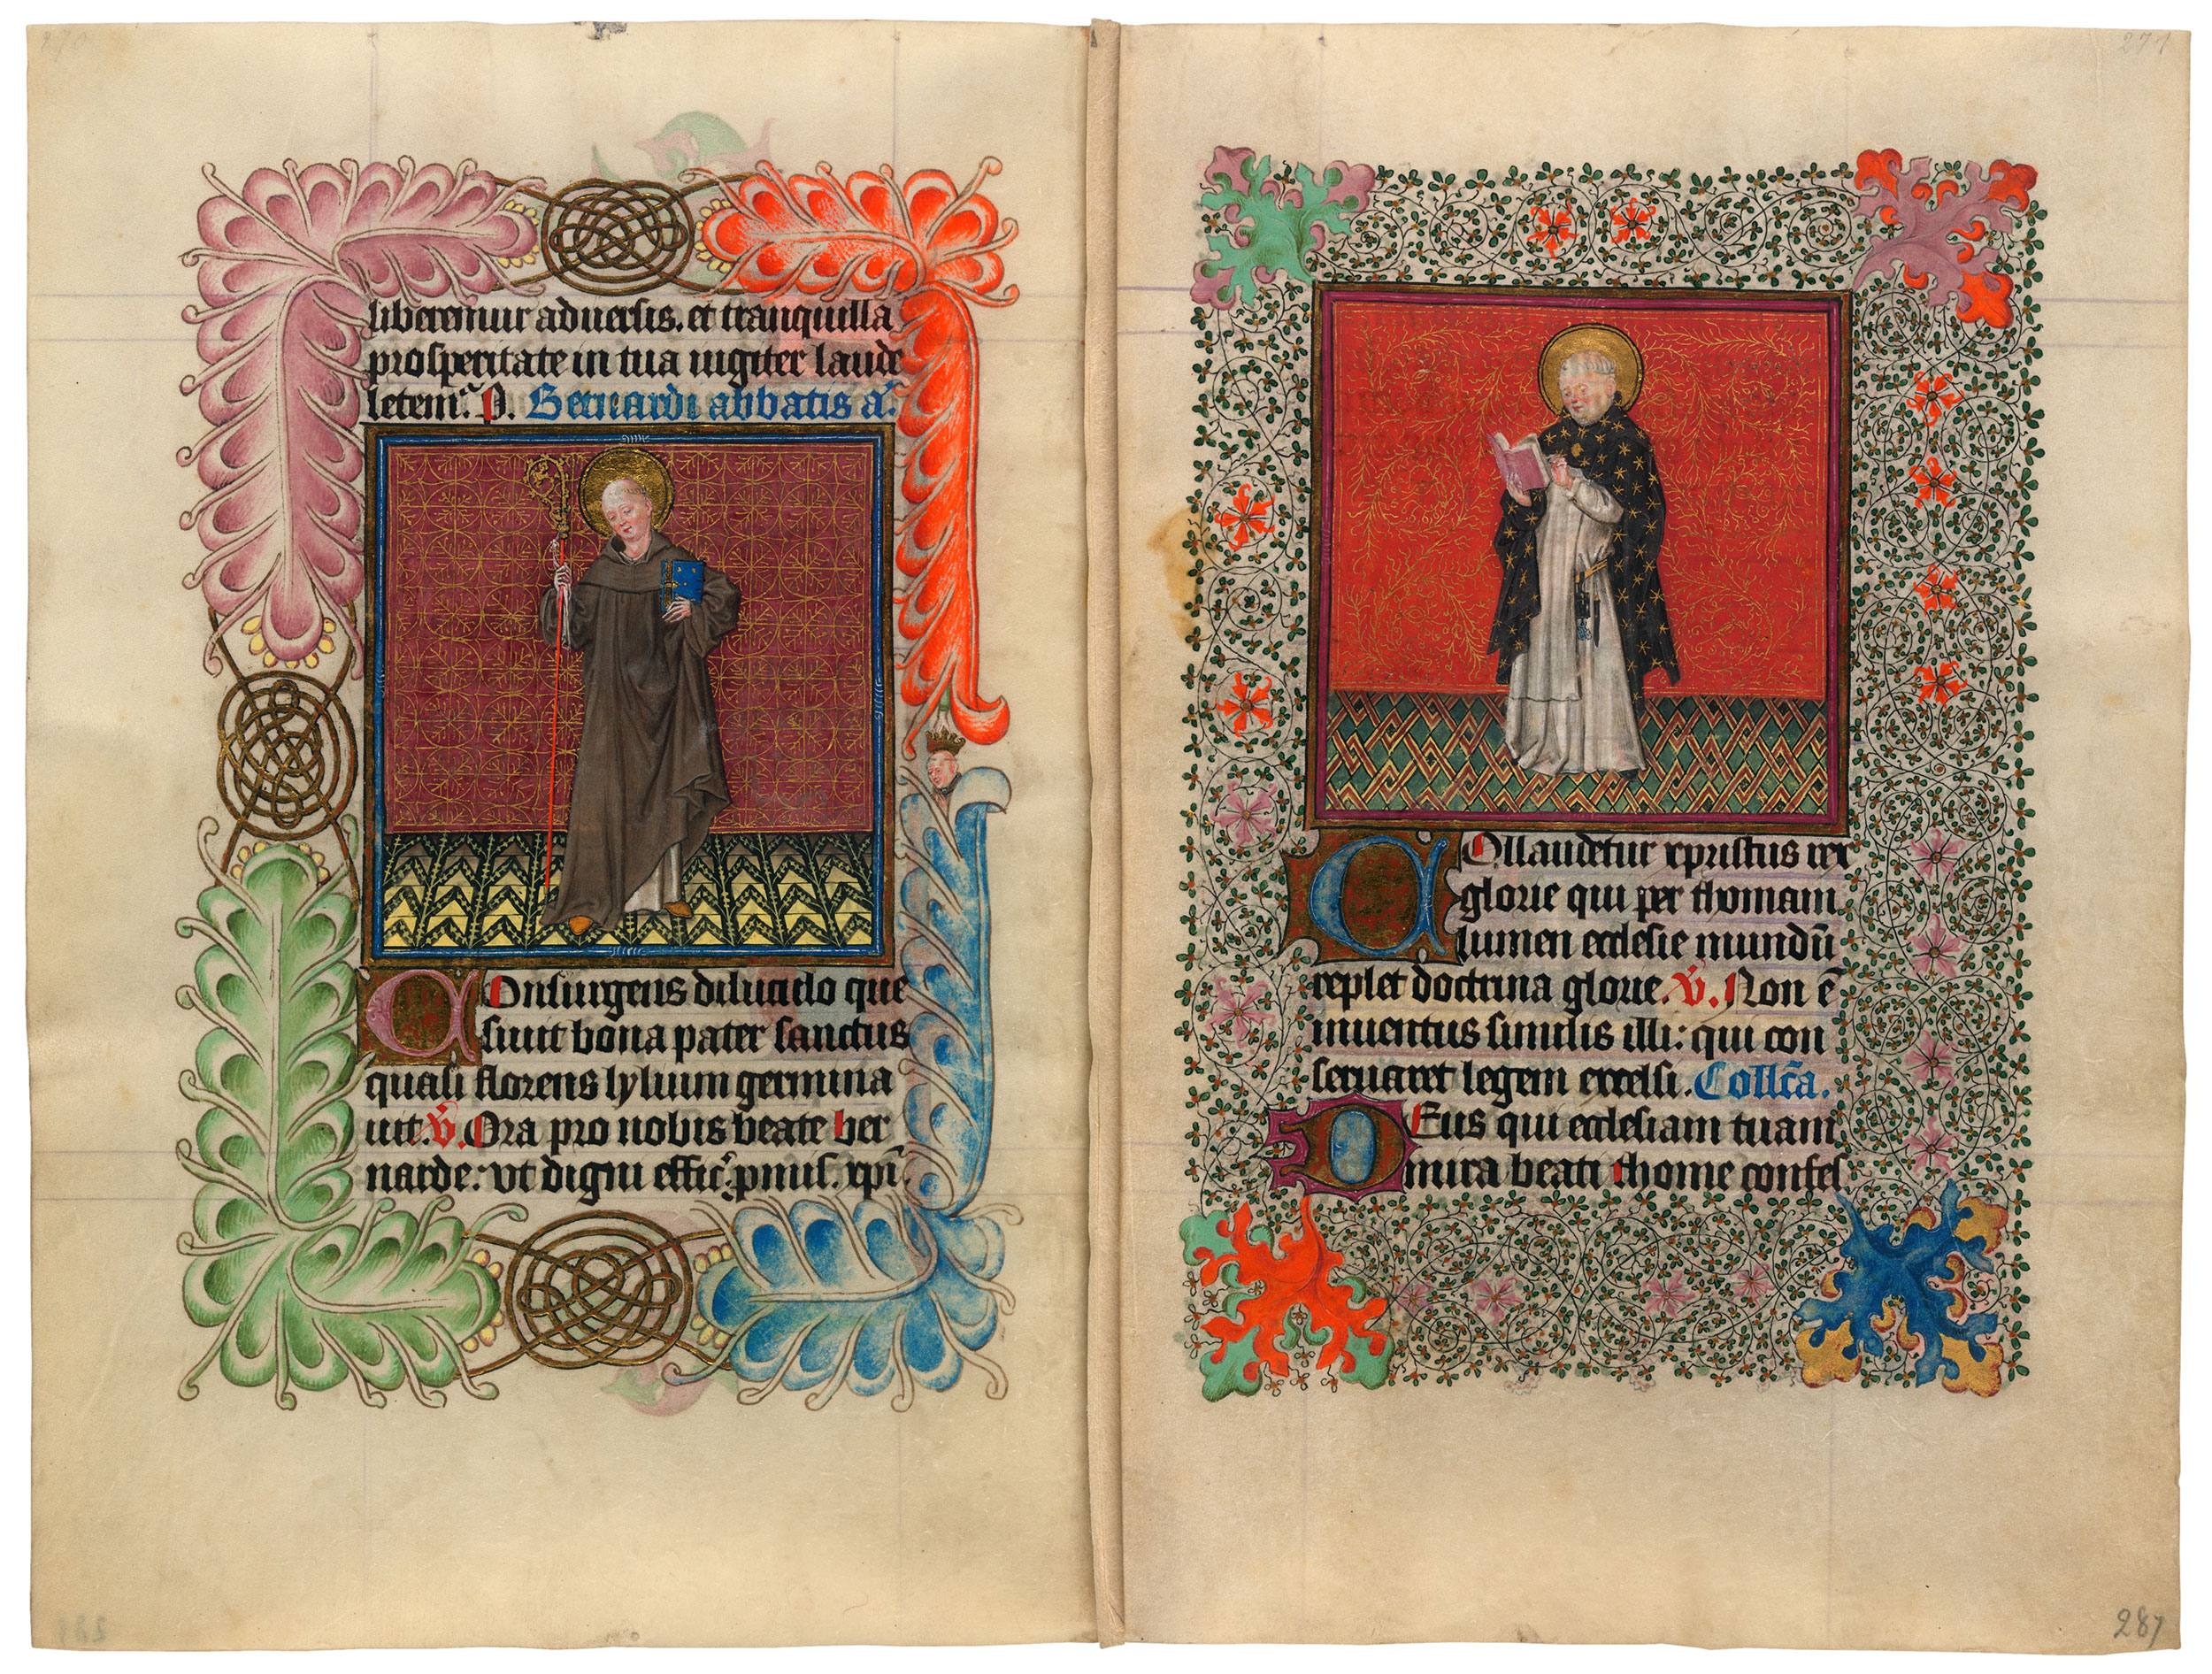 270
liberemur aduersis. et tranquilla
prosperitate in tua iugiter laude
letemr̄. D. Bernardi abbatis a͠.
COnsurgens diluculo que
siuit bona pater sanctus
quasi florens lylium germina
uit. V̄. Ora pro nobis beate ber
narde: vt digni effic̄: pmis. xpī.
271
COllaudetur xpristus rex
glorie qui per thomam
lumen ecclesie mundū
replet doctrina glorie. V̄. Non ē
inuentus similis illi: qui con
seruaret legem excelsi. Collc̄a.
DEus qui ecclesiam tuam
mira beati thome confes
287